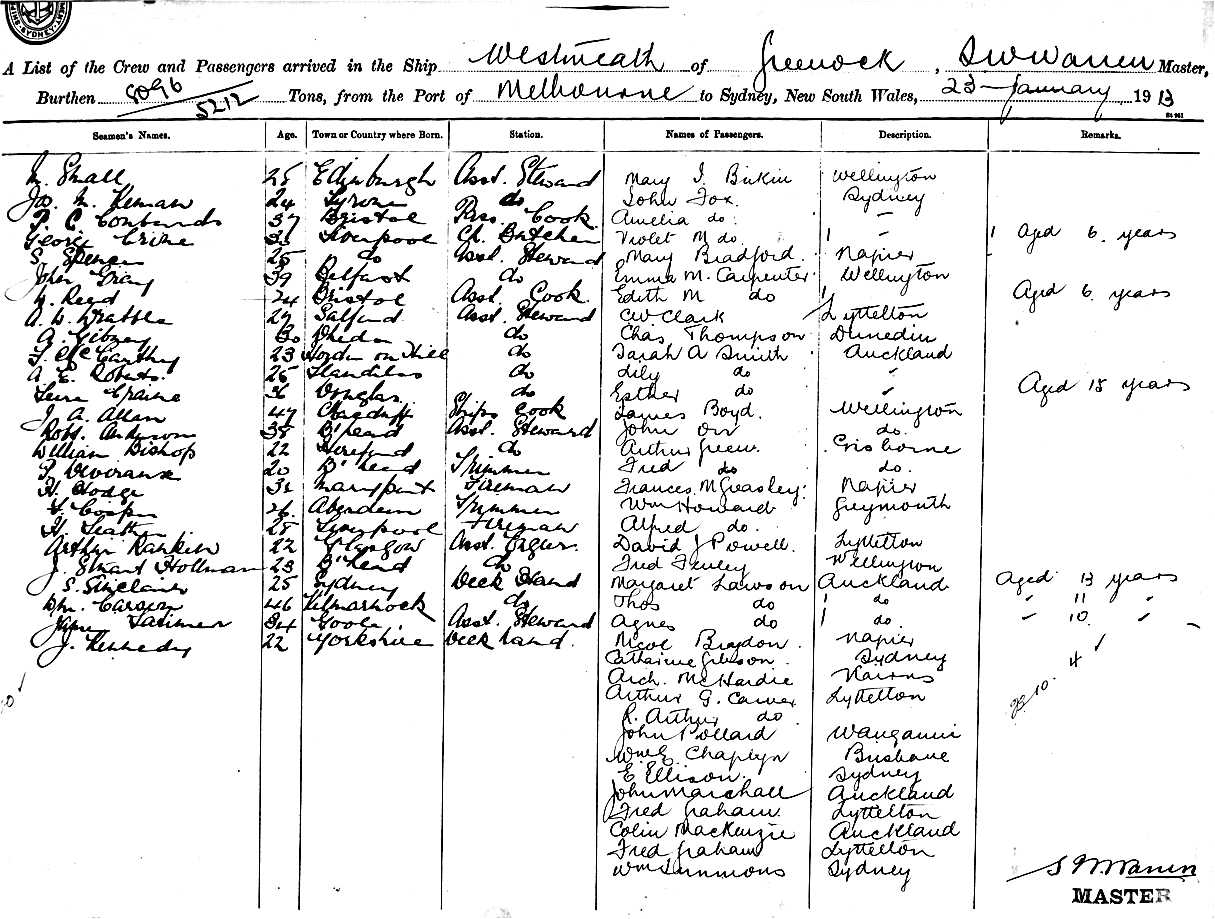 SYDNEY
A List of the Crew and Passengers arrived in the Ship Westmeath of Greenock, S W Warren Master,
Burthen 8096 / 5212 Tons, from the Port of Melbourne to Sydney, New South Wales, 23 January 1913
Seamen's Names. Age. Town or Country where Born. Station. Names of Passengers. Description. Remarks.
Small 25 Edinburgh Asst. Steward Mary I. Birkin Wellington
24 Tyrone do John Fox. Sydney
P. C. 37 Bristol Pass. Cook Amelia do. "
George Crine Liverpool Ch. Butcher Violet M do 1 " 1 Aged 6. years
S. Spencer 25 do Asst. Steward Mary Bradford. Napier
John Gray 39 Belfast do Emma M. Carpenter Wellington
Reed 24 Bristol Asst. Cook. Edith M do Aged 6. years
Salford Asst. Steward CW Clark Lyttelton
do Chas. Thompson Dunedin
McCarthy 23 do Sarah A Smith Auckland
A. E. Roberts. do Lily do "
36 Douglas do Esther do " Aged 18 years
J. A. Allan 47 Ships Cook James Boyd. Wellington
Robt. Anderson B'head Asst. Steward John Orr do.
William Bishop 22 Hereford do Arthur Green. Gisborne
P. Devereaux 20 B'head Trimmer Fred do do.
H. Hodge Maryport Fireman Frances M Greasley. Napier
26. Aberdeen Trimmer Wm Howard Greymouth
H. 28 Liverpool Fireman Alfred do.
Arthur Rankin 22 Glasgow David J Powell. Lyttelton
J. Stuart Hollman 23 B'head do Fred Wellington
S. Sinclair 25 Sydney Deck Hand Margaret Lawson Auckland Aged 13 years
46 Kilmarnock do Thos do 1 do " 11 "
Latimer 34 Goole Asst. Steward Agnes do 1 do. " 10. "
J. Kennedy 22 Yorkshire Deck hand. Napier
Catharine Gibson. Sydney
Arch. McHardie
Arthur G. Carver Lyttelton
R. Arthur do.
John Pollard Wanganui
Chaplyn Brisbane
E Ellison. Sydney
John Marshall Auckland
Fred Graham. Lyttelton
Colin MacKenzie Auckland
Fred Graham Lyttelton
Wm Simmons Sydney
S W Warren
MASTER